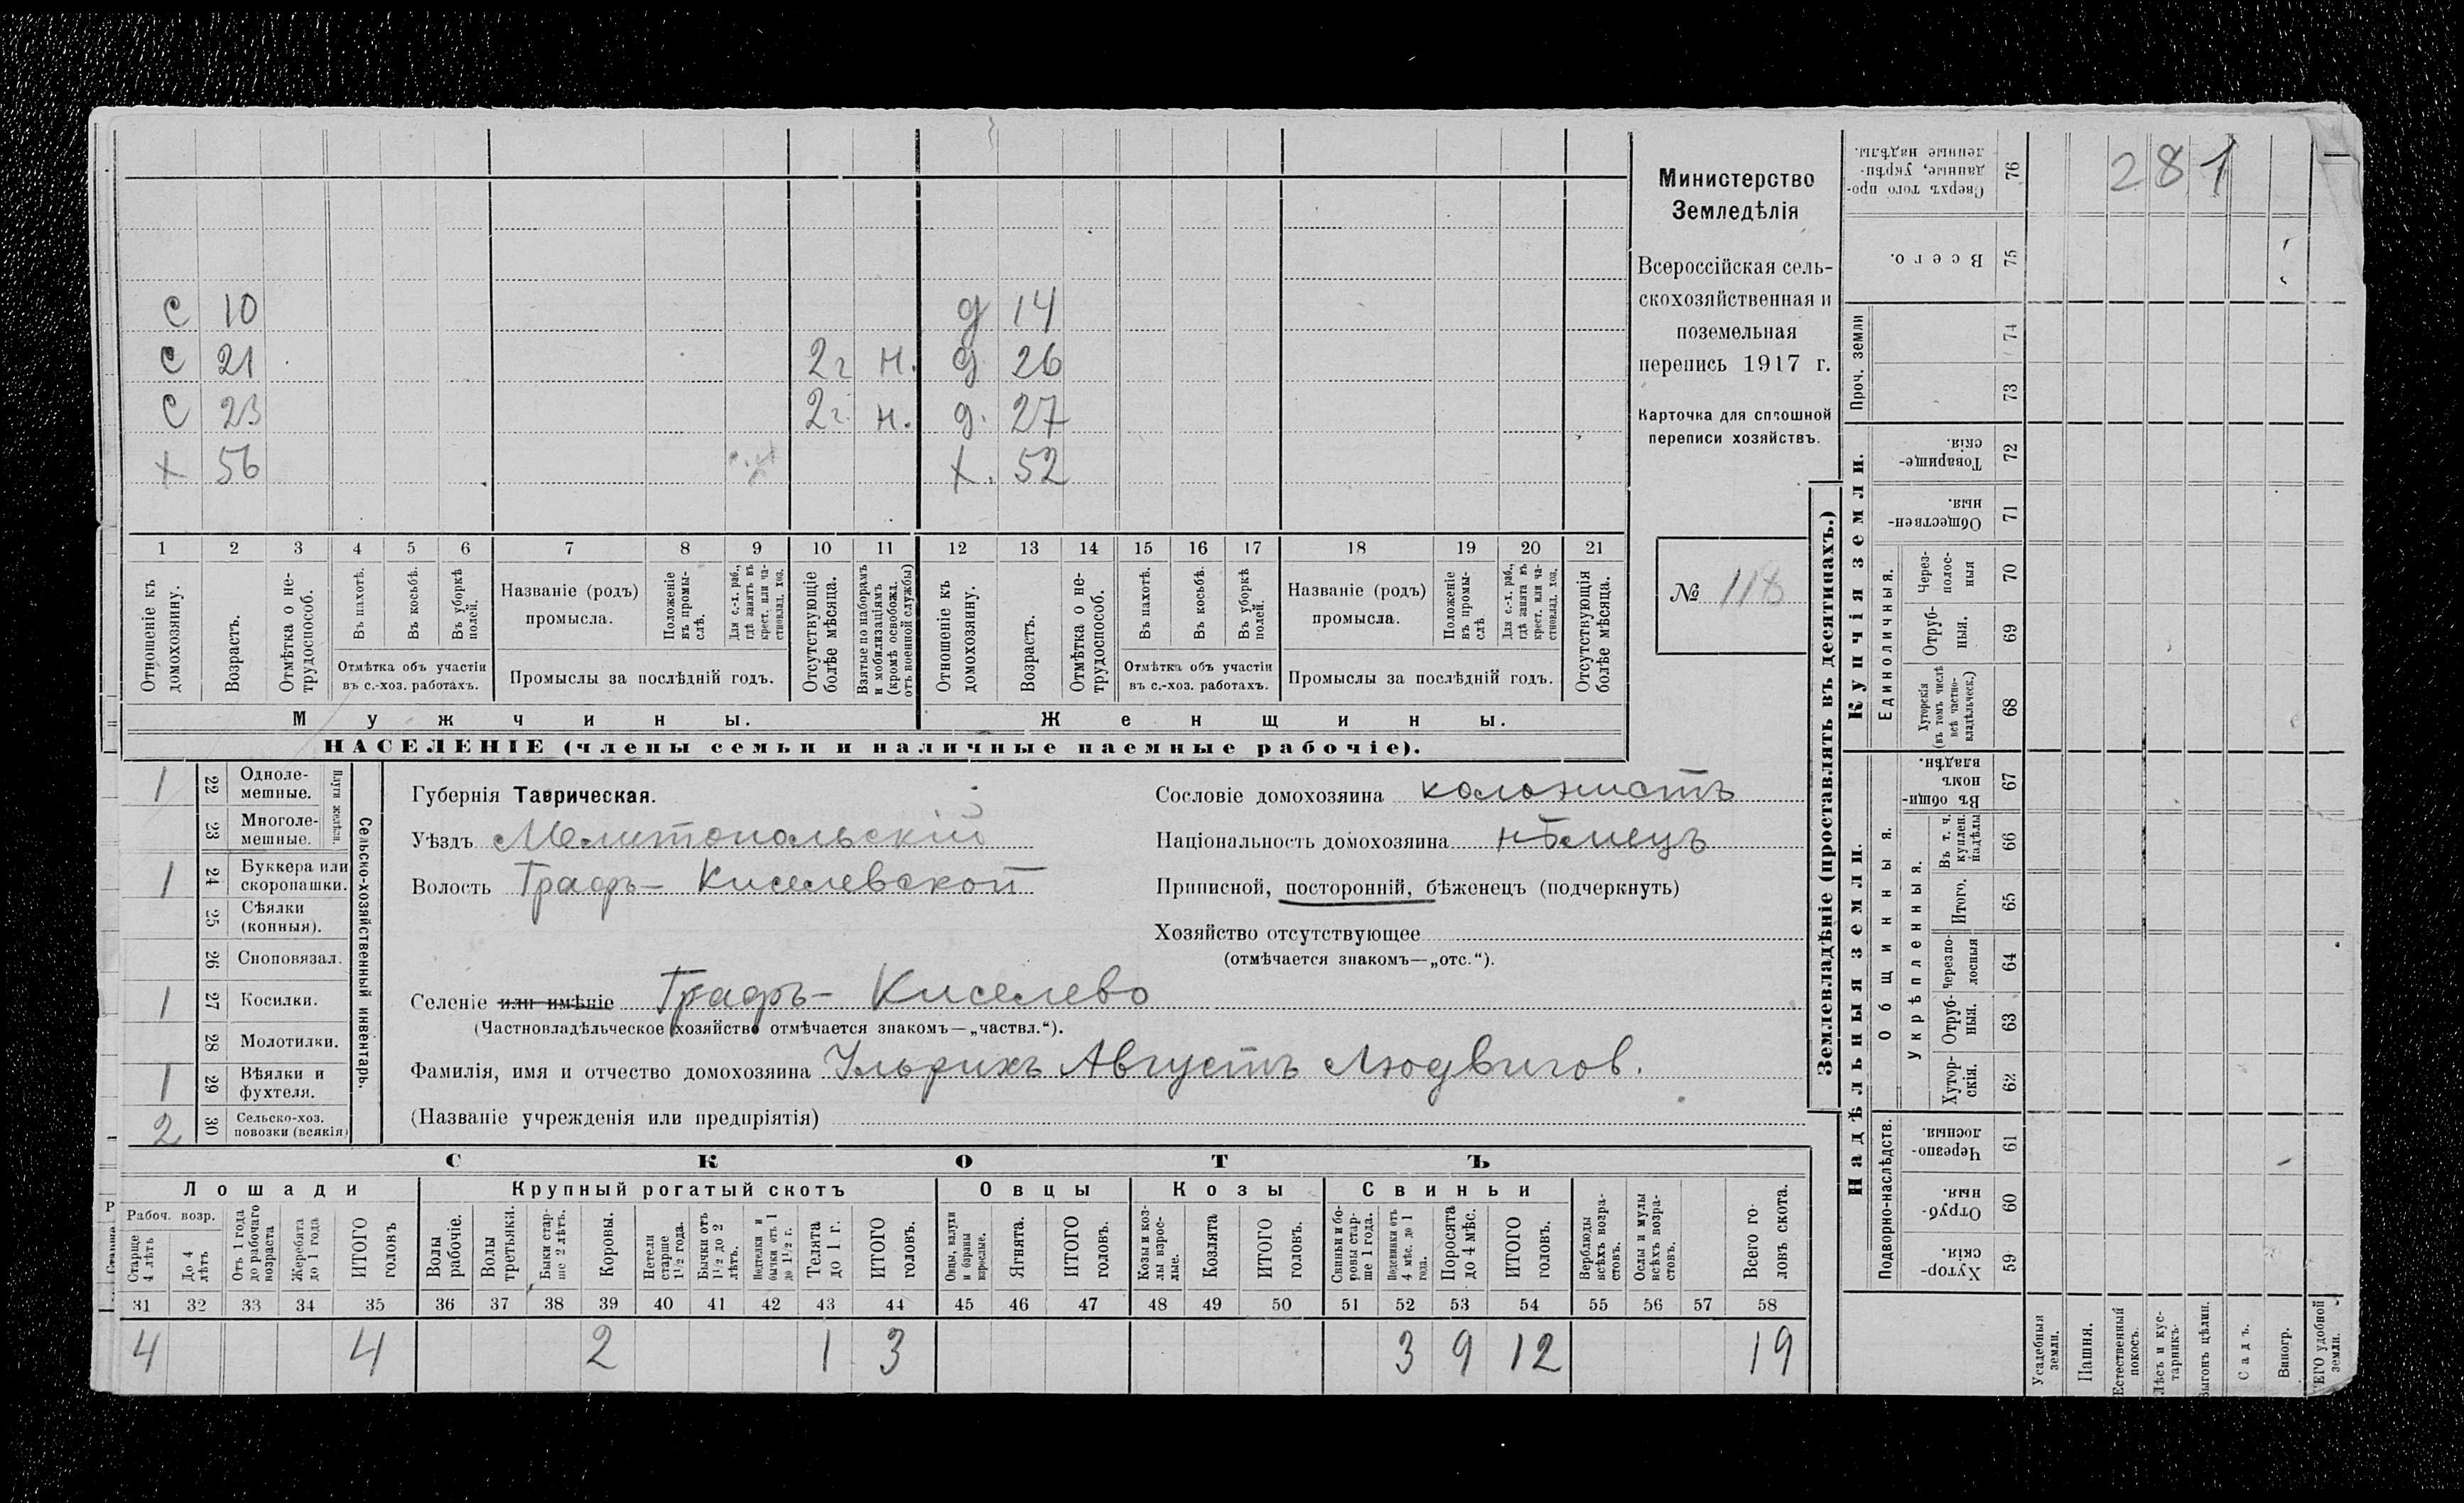 281
С 10 д 14
С 21 2г н. д 26
С 23 2г. н. д. 27
х 56 х. 52
1 2 3 4 5 6 7 8 9 10 11 12 13 14 15 16 17 18 19 20 21
Отношеніе къ домохозяину.
Возрастъ.
Отмѣтка о не-трудоспособ.
Въ пахотѣ.
Въ косьбѣ.
Въ уборкѣ полей.
Отмѣтка объ участіи
въ с.-хоз. работахъ.
Названіе (родъ)
промысла.
Положеніе въ промы-слѣ.
Для с.-х. раб., гдѣ занятъ въ крест. или ча-стновлад. хоз.
Промыслы за послѣдній годъ.
Отсутствующіе болѣе мѣсяца.
Взятые по наборамъ и мобилизаціямъ (кромѣ освобожд. отъ военной службы)
Отношеніе къ домохозяину.
Возрастъ.
Отмѣтка о не-трудоспособ.
Въ пахотѣ.
Въ косьбѣ.
Въ уборкѣ полей.
Отмѣтка объ участіи
въ с.-хоз. работахъ.
Названіе (родъ)
промысла.
Положеніе въ промы-слѣ.
Для с.-х. раб., гдѣ занята въ крест. или ча-стновлад. хоз.
Промыслы за послѣдній годъ.
Отсутствующія болѣе мѣсяца.
Мужчины.
Женщины.
НАСЕЛЕНІЕ (члены семьи и наличные наемные рабочіе).
Министерство
Земледѣлія
Всероссійская сель-
скохозяйственная и
поземельная
перепись 1917 г.
Карточка для сплошной
переписи хозяйствъ.
№ 118
1 22 Одноле-мешные.
23 Многоле-мешные.
Плуги желѣзн.
1 24 Буккера или скоропашки.
25 Сѣялки (конныя).
26 Сноповязал.
1 27 Косилки.
28 Молотилки.
1 29 Вѣялки и фухтеля.
2 30 Сельско-хоз. повозки (всякія)
Сельско-хозяйственный инвентарь.
Губернія Таврическая.
Уѣздъ Мелитопольскій
Волость Графъ-Киселевской
Сословіе домохозяина колонистъ
Національность домохозяина нѣмецъ
Приписной, посторонній, бѣженецъ (подчеркнуть)
Хозяйство отсутствующее
(отмѣчается знакомъ—„отс.“).
Селеніе или имѣніе Графъ-Киселево
(Частновладѣльческое хозяйство отмѣчается знакомъ—„частвл.“).
Фамилія, имя и отчество домохозяина Ульрихъ Августъ Людвигов.
(Названіе учрежденія или предпріятія)
СКОТЪ
Лошади
Крупный рогатый скотъ
Овцы
Козы
Свиньи
Рабоч. возр.
Старше 4 лѣтъ
До 4 лѣтъ
Отъ 1 года до рабочаго возраста
Жеребята до 1 года
ИТОГО головъ
Волы рабочіе.
Волы третьяки.
Быки стар-ше 2 лѣтъ.
Коровы.
Нетели старше 1½ года.
Бычки отъ 1½ до 2 лѣтъ.
Подтелки и бычки отъ 1 до 1½ г.
Телята до 1 г.
ИТОГО головъ.
Овцы, валухи и бараны взрослые.
Ягнята.
ИТОГО головъ.
Козы и коз-лы взрос-лые.
Козлята
ИТОГО головъ.
Свиньи и бо-ровы стар-ше 1 года.
Подсвинки отъ 4 мѣс. до 1 года.
Поросята до 4 мѣс.
ИТОГО головъ.
Верблюды всѣхъ возра-стовъ.
Ослы и мулы всѣхъ возра-стовъ.
Всего го-ловъ скота.
31 32 33 34 35 36 37 38 39 40 41 42 43 44 45 46 47 48 49 50 51 52 53 54 55 56 57 58
4 4 2 1 3 3 9 12 19
Землевладѣніе (проставлять въ десятинахъ.)
Купчія земли.
Надѣльныя земли.
Сверхъ того про-данные, укрѣп-ленные надѣлы. 76
Всего. 75
Проч. земли
74
73
Товарище-скія. 72
Обществен-ныя. 71
Единоличныя.
Через-полос-ныя 70
Отруб-ныя. 69
Хуторскія (въ томъ числѣ всѣ частно-владѣльческ.) 68
Общинныя.
Въ общи-номъ владѣн. 67
Укрѣпленныя.
Въ т. ч. куплен. надѣлы 66
Итого. 65
Черезпо-лосныя 64
Отруб-ныя. 63
Хутор-скія. 62
Подворно-наслѣдств.
Черезпо-лосныя. 61
Отруб-ныя. 60
Хутор-скія. 59
Усадебныя земли.
Пашня.
Естественный покосъ.
Лѣсъ и кус-тарникъ.
Выгонъ цѣлин.
Садъ.
Виногр.
удобной земли.